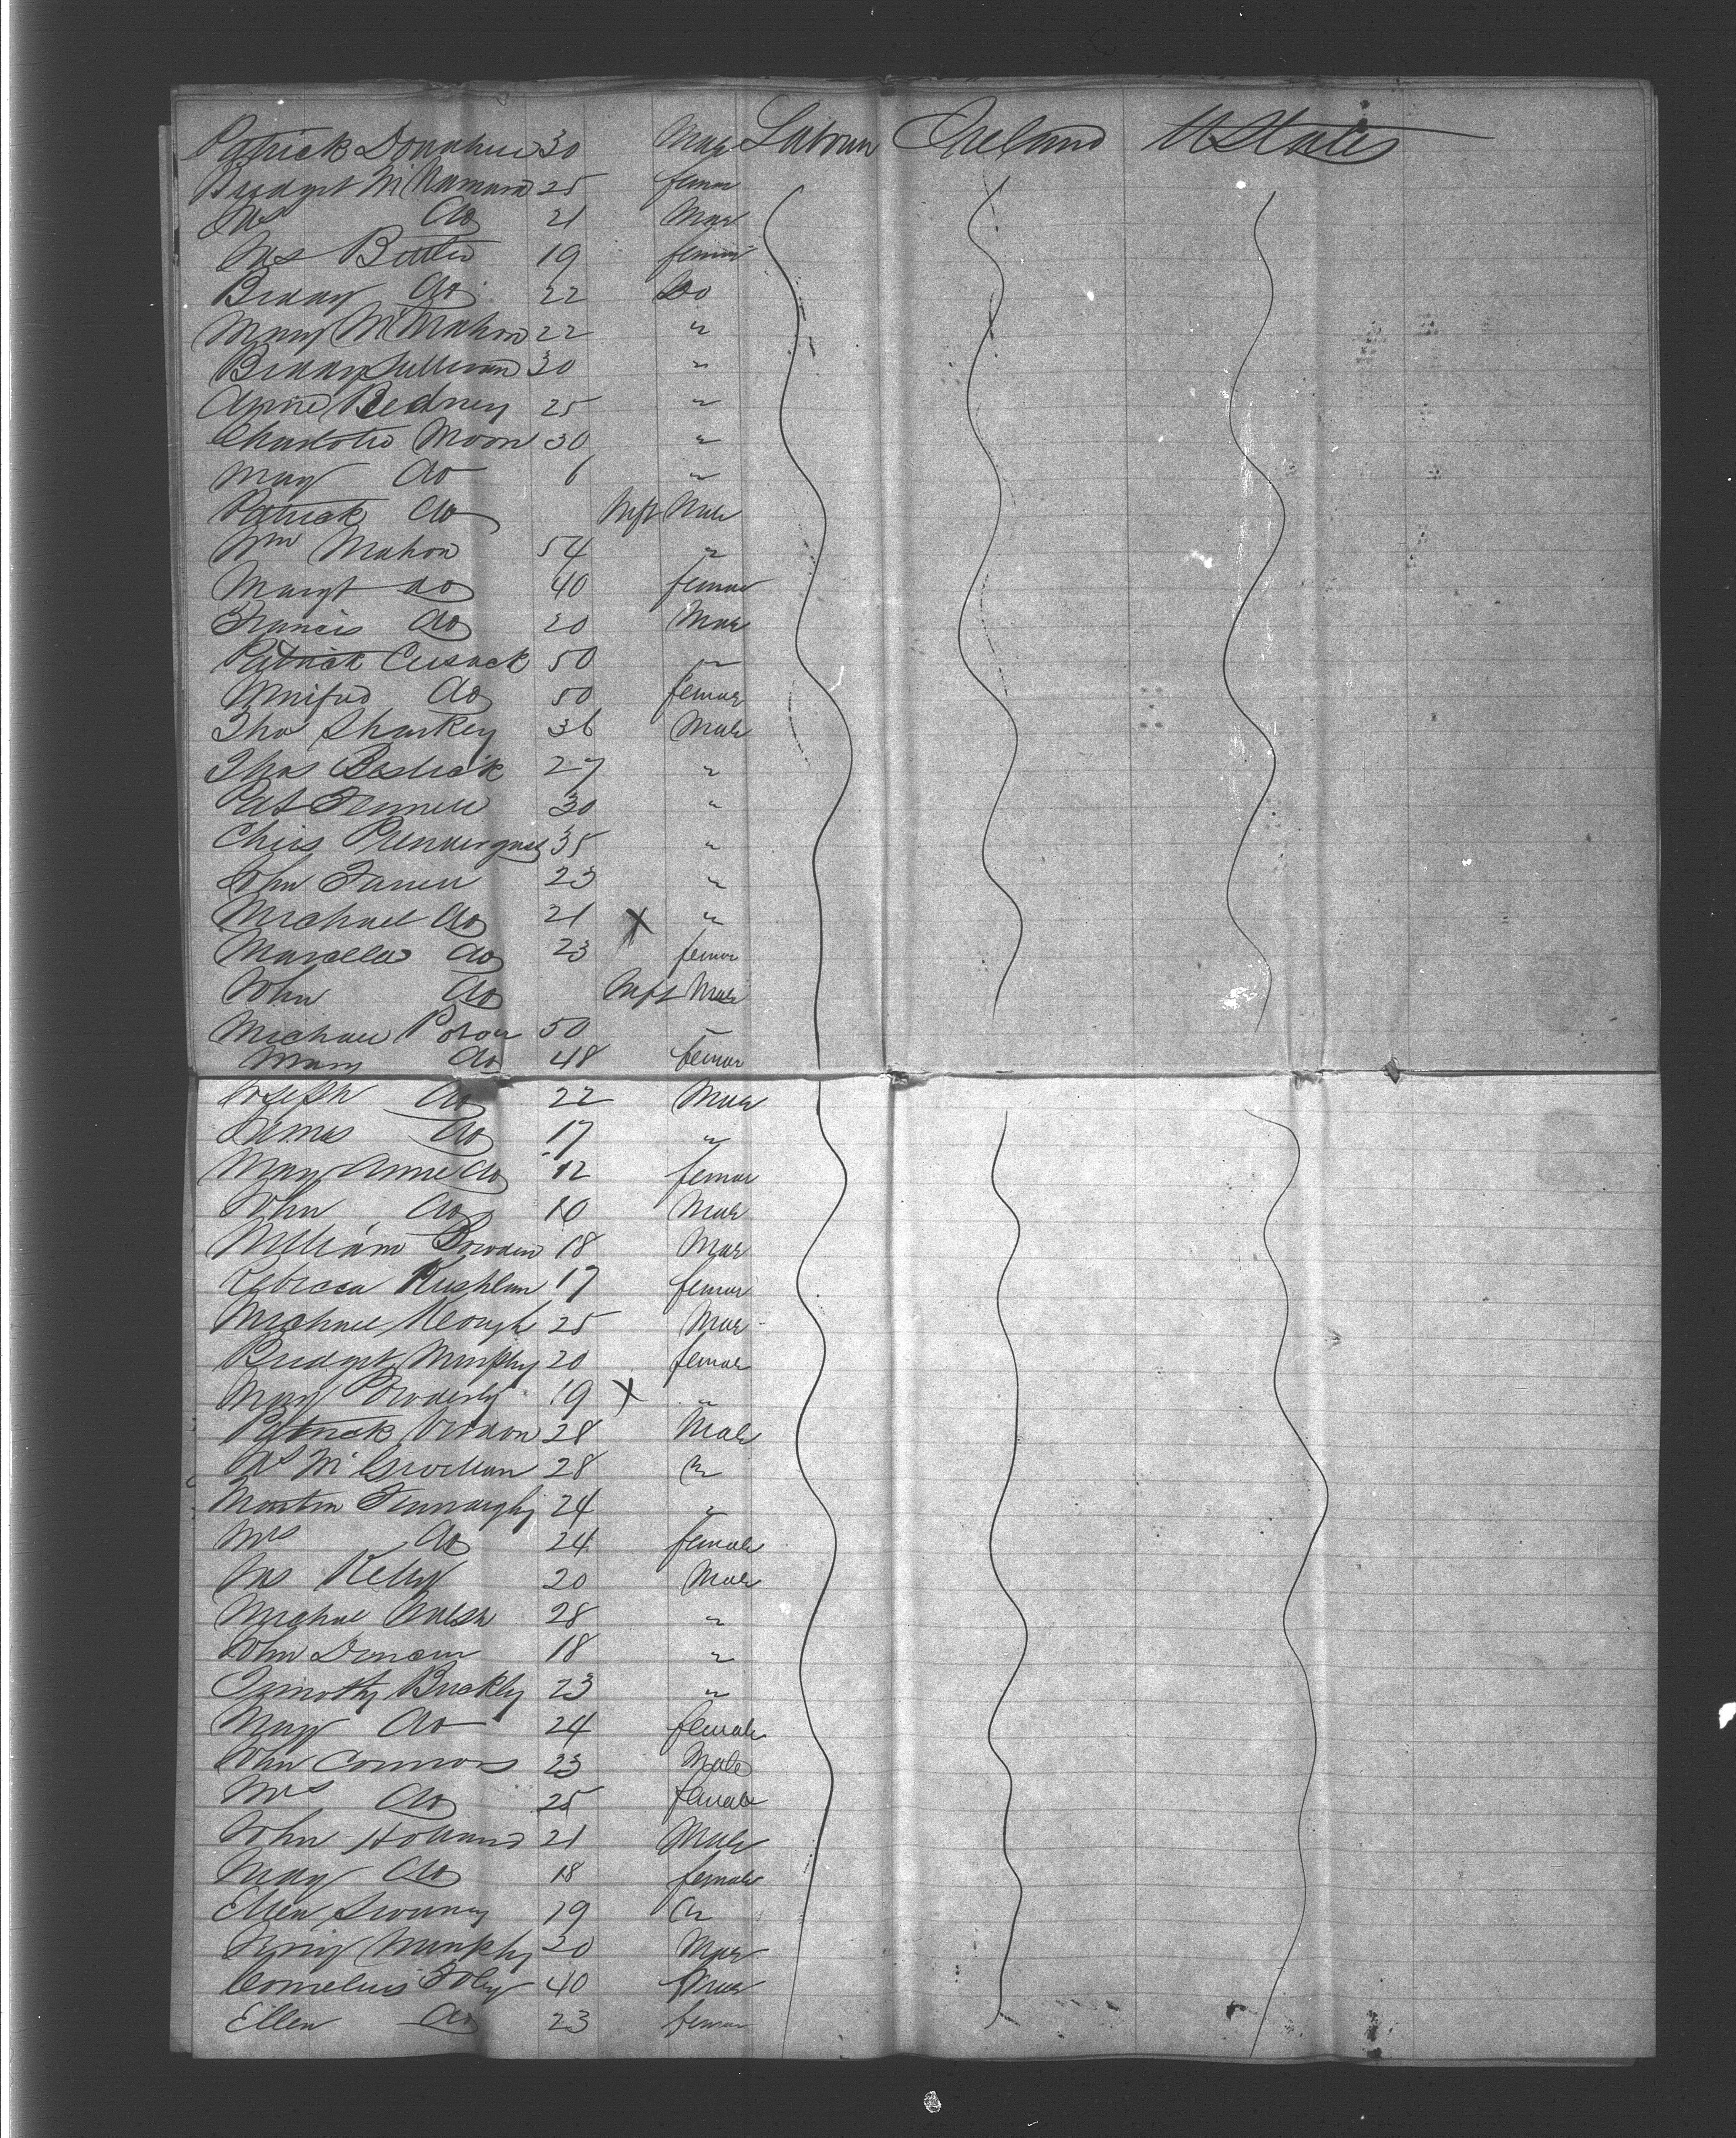 Patrick Donahue 30 Male Labour Ireland U States
Bridget McNamara 25 female
Ms do 21 Male
Ms Butler 19 female
Biddy do 22 Do
Mary McMahon 22 "
Biddy Sullivan 30 "
Anne Bedney 25 "
Charlotte Moon 30 "
Mary do 6 "
Patrick do Inft Male
Wm Mahon 54 "
Margt do 40 female
Francis do 20 Male
Patrick Cusack 50 "
Winifred do 50 female
Tho Sharkey 36 Male
Thos Bostick 27 "
Pat Fennell 30 "
Chris Prendergast 35 "
John Farrell 23 "
Michael do 21 X "
Marcella do 23 female
John do Inft Male
Michael Power 50 "
Mary do 48 female
Joseph do 22 Male
James do 17 "
Mary Anne do 12 female
John do 10 Male
William Bowden 18 Male
Rebecca 17 female
Michael Keough 25 Male
Bridget Murphy 20 female
Mary Powderly 19 X "
Patrick Verdon 28 Male
28 "
Martin Fennaughty 24 "
Mrs do 24 female
Ms Kelly 20 Male
Michael Walsh 28 "
John Duncan 18 "
Timothy Buckly 23 "
Mary do 24 female
John Connors 23 Male
Mrs do 25 female
John Holland 21 Male
Mary do 18 female
Ellen Sweeney 19 "
Jerry Murphy 20 Male
Cornelius Foley 40 Male
Ellen do 23 female